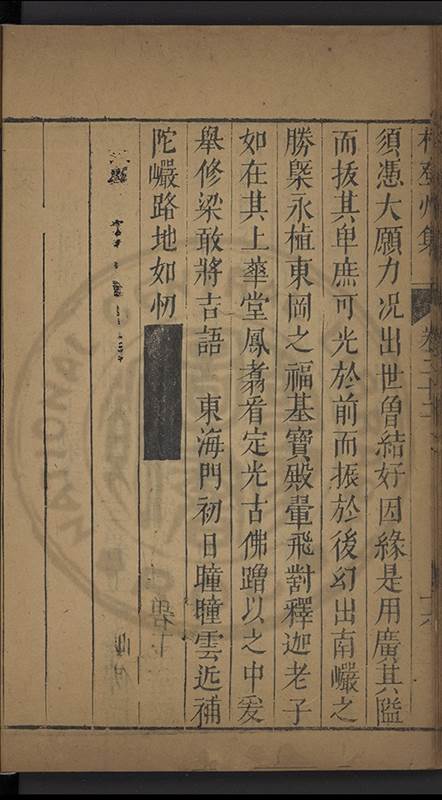 集
須憑大願力况出世曾結好因緣是用廣其隘
而拔其卑庶可光於前而振於後幻出南巗之
勝槩永植東岡之福基寶殿翬飛對釋迦老子
如在其上華堂鳳翥看定光古佛蹭以之中爰
舉修梁敢將吉語　東海門初日曈曈雲近補
陀巗路地如切